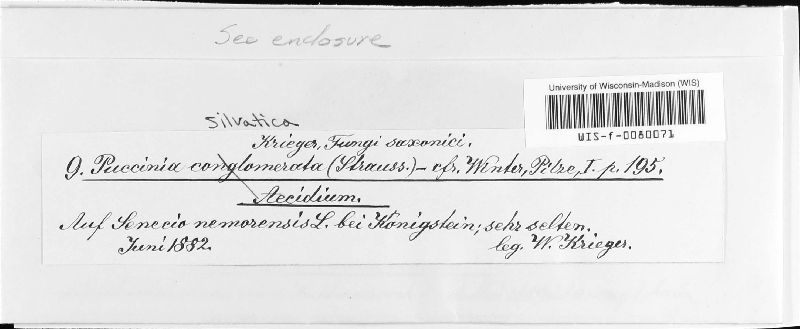 See enclosure
University of Wisconsin-Madison (WIS)
WIS-f-0080071
silvatica
Krieger, Fungi saxonici.
9. Puccinia conglomerata (Strauss.) – cfr. Winter, Pilze, I. p. 195.
Aecidium.
Auf Senecio nemorensis L. bei Königstein; sehr selten.
Juni 1882. leg. W. Krieger.